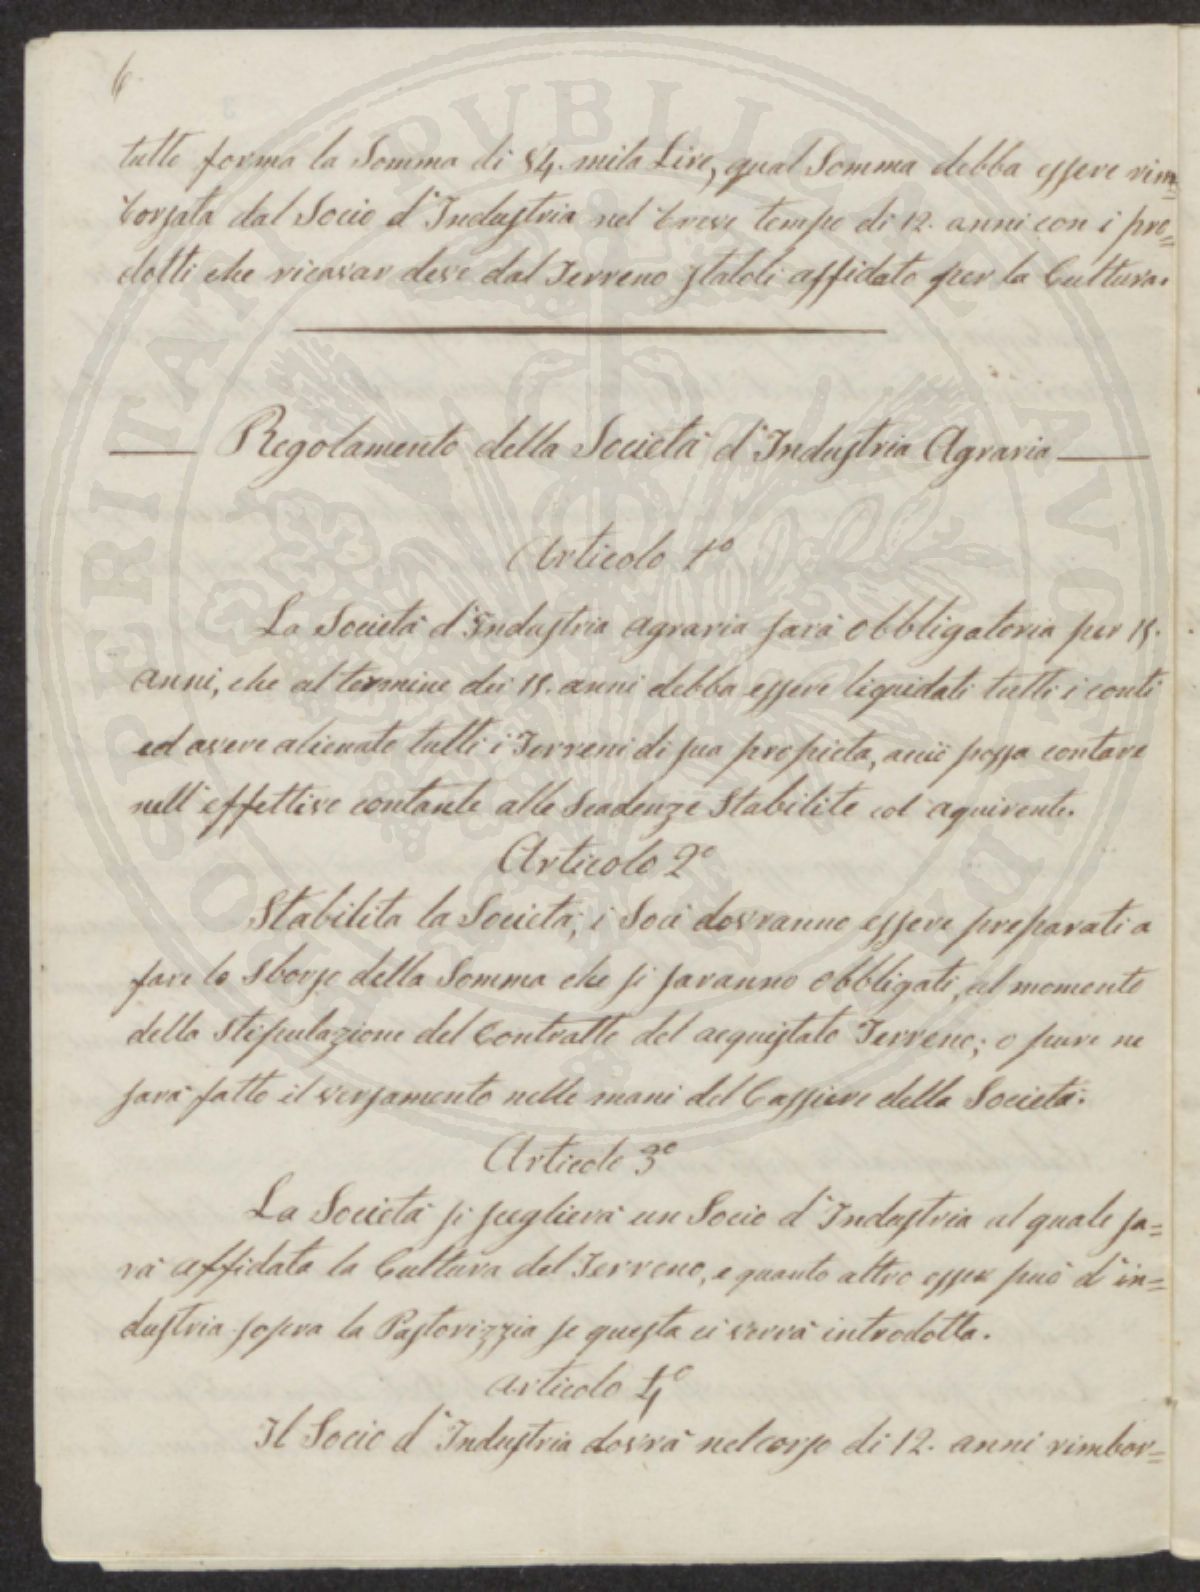 6
tutto forma la Somma di 54. mila Lire, qual Somma debba essere rim=
borsata dal Socio d'Industria nel breve tempo di 12. anni con i pro=
dotti che ricavar deve dal Terreno statoli affidato per la Cultura.
Regolamento della Società d'Industria Agraria
Articolo 1º
La Società d'Industria agraria sarà obbligatoria per 15.
anni, che al termine dei 15. anni debba essere liquidati tutti i conti
ed avere alienato tutti i Terreni di sua propieta, acciò possa contare
nell'effettivo contante alle Scadenze Stabilite col aquirente.
Articolo 2º
Stabilita la Società; i Soci dovranno essere preparati a
fare lo Sborso della Somma che si saranno obbligati, al momento
della Stipulazione del Contratto del acquistato Terreno; o pure ne
sarà fatto il versamento nelle mani del Cassiere della Società.
Articolo 3º
La Società si sceglierà un Socio d'Industria al quale sa=
rà affidata la Cultura del Terreno, e quanto altro esser può d'in=
dustria sopra la Pastorizzia se questa ci verrà introdotta.
Articolo 4º
Il Socio d'Industria dovrà nel corso di 12. anni rimbor=